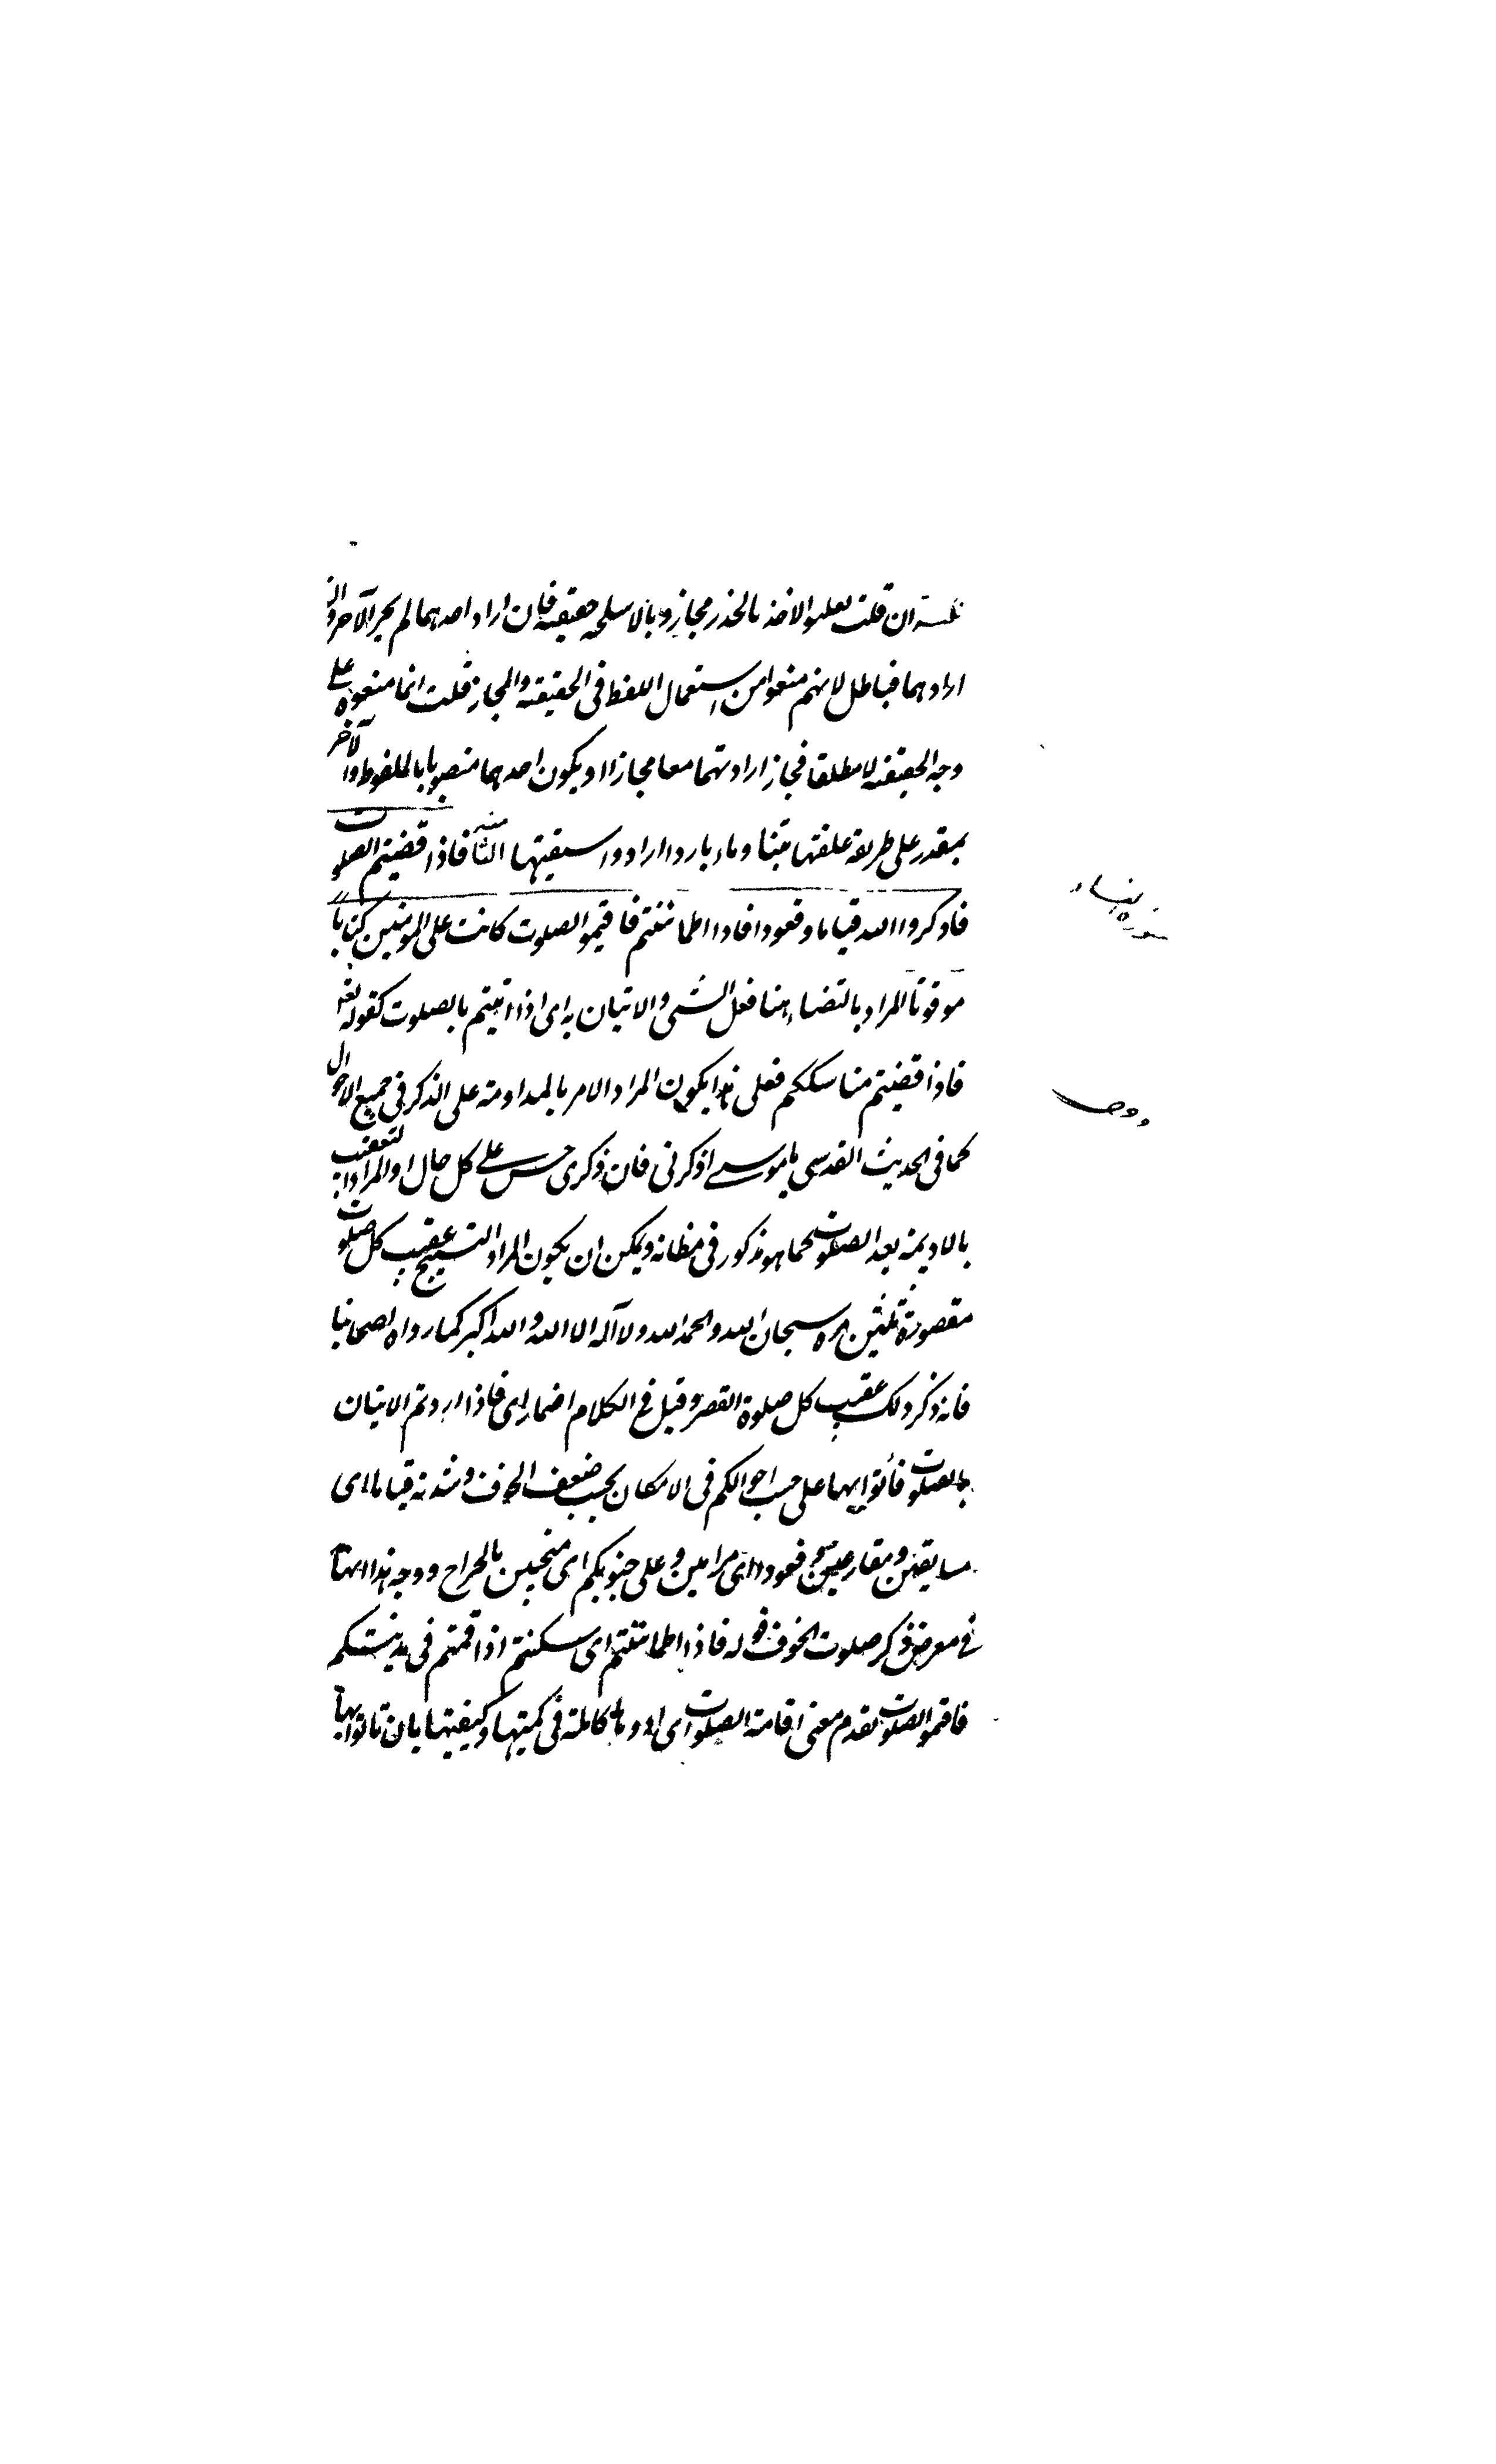 ان قلت تعلق الاخذ بالحذر مجاز و بالاسلحه حقيقه فان اراد احدهما لم يجز الآخر وان
ارادهما فباطل لانهم منعوا من استعمال اللفظ فى الحقيقه والمجاز قلت انما منعوه على
وجه الحقيقه لا مطلقا فجاز ارادتهما معا مجازا او يكون احدهما منصوبا بالملفوظ والآخر
بمقدر على طريقه علفتها تبنا وماء باردا اراد واسقيتها فاذا قضيتم الصلوت
فاذكروا الله قياما وقعودا فاذا اطماننتم فاقيموا الصلوت كانت على المؤمنين كتابا
موقوتا المراد بالقضاء هنا فعل الشى والاتيان به اى اذا اتيتم بالصلوت كقوله تعالى
فاذا قضيتم مناسككم فعلى هذا يكون المراد الامر بالمداومة على الذكر فى جميع الاحوال
كما فى الحديث القدسى يا موسى اذكرنى فان ذكرى حسن على كل حال او المراد به التعقيب
بالادعية بعد الصلوت كما هو مذكور فى مظانه ويمكن ان يكون المراد التسبيح عقيب كل صلوت
مقصورة ثلثين مره سبحان الله والحمد لله ولا آله الا الله والله اكبر كما رواه اصحابنا
فانه ذكر ذلك عقيب كل صلوة القصر وقيل فى الكلام اضمار اى فاذا اردتم الاتيان
بالصلوت فأتوا بها على حسب احوالكم فى الامكان بحسب ضعف الخوف وشدته قياما اى
مسايفين ومقارعين وقعودا اى مرامين وعلى جنوبكم اى مثخنين بالجراح ووجه هذا انها
فى معرض ذكر صلوت الخوف قوله فاذا اطماننتم اى سكنتم اذا قمتم فى مدينتكم
فاقموا الصلوت تقدم معنى اقامة الصلوت اى ادوها كاملة فى كميتها وكيفيتها بان تاتوا بها
سوره نساء